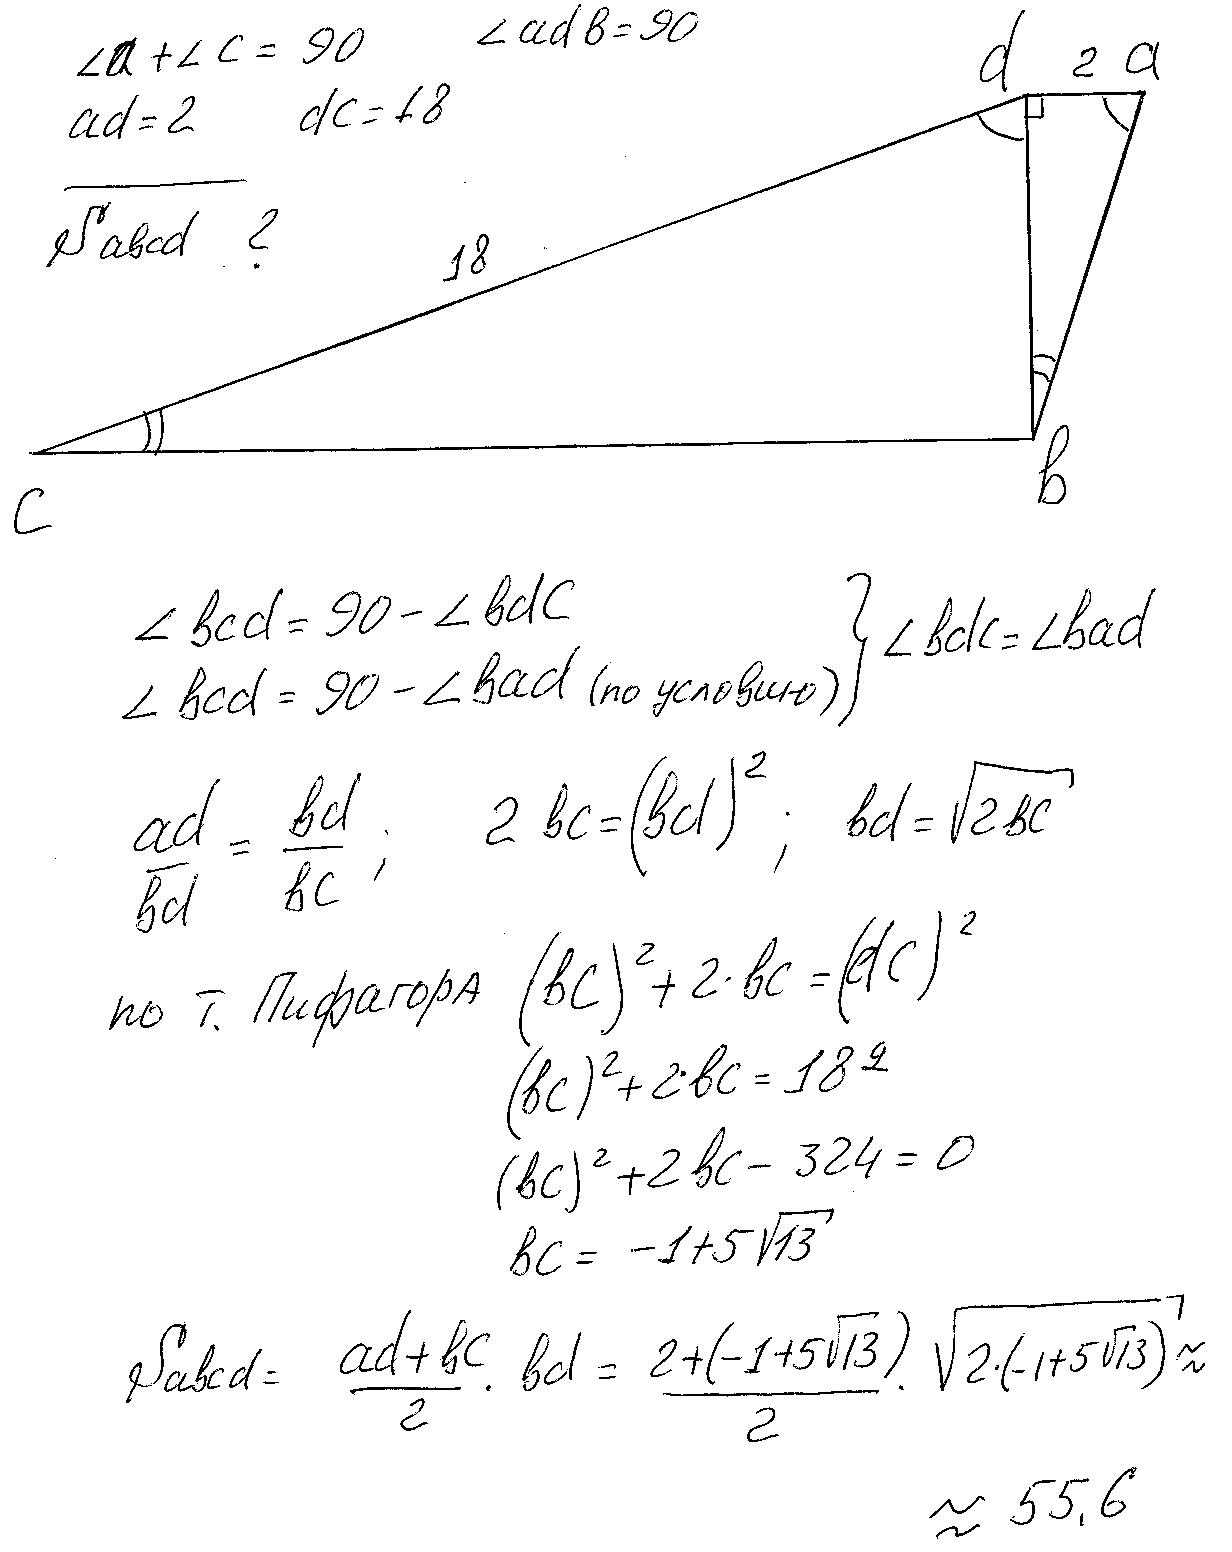 ∠a + ∠C = 90 ∠adB = 90
ad = 2 dC = 18
Sabcd ?
d 2 a
18
C
b
∠bcd = 90 - ∠bdC
∠bcd = 90 - ∠bad (по условию) } ∠bdC = ∠bad
ad/bd = bd/bC ; 2 bC = (bd)² ; bd = √2bC
по т. Пифагора (bC)² + 2·bC = (dC)²
(bC)² + 2·bC = 18²
(bC)² + 2bC - 324 = 0
bC = -1+5√13
Sabcd = (ad+bC)/2 · bd = (2+(-1+5√13))/2 · √2·(-1+5√13) ≈
≈ 55,6